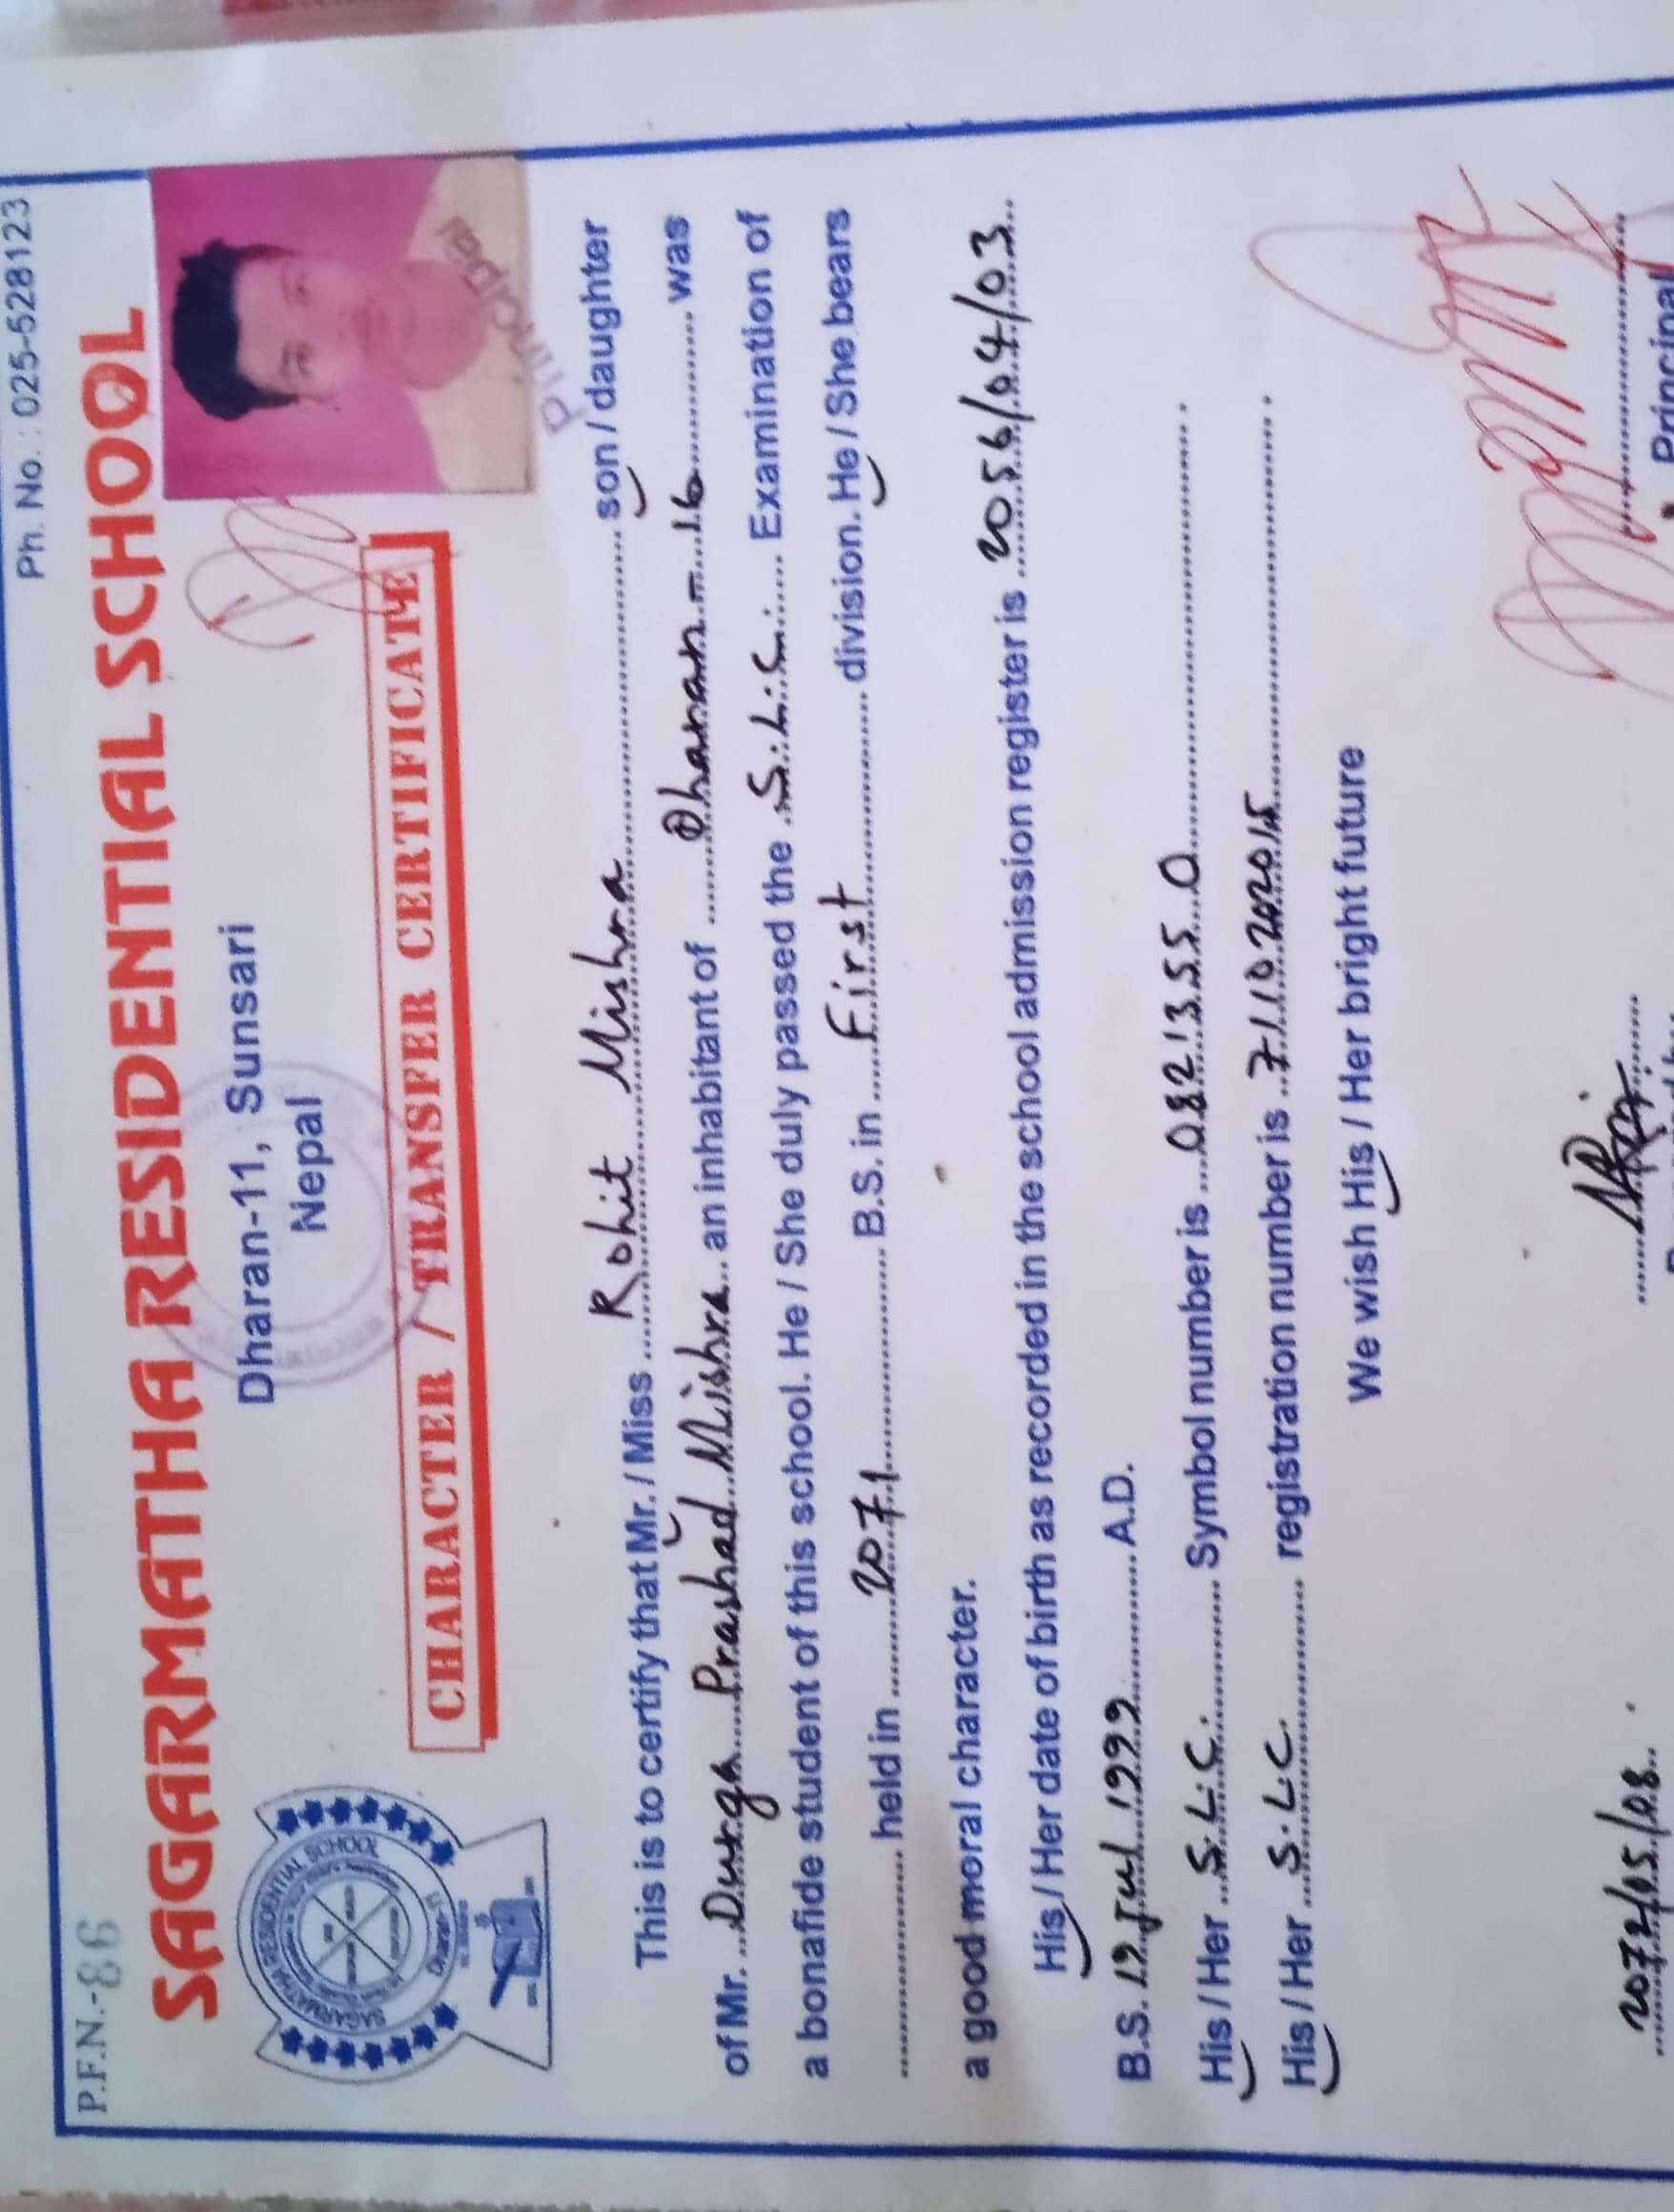 P.F.N.-86
Ph. No. : 025-528123
SAGARMATHA RESIDENTIAL SCHOOL
Dharan-11, Sunsari
Nepal
CHARACTER / TRANSFER CERTIFICATE
SAGARMATHA RESIDENTIAL SCHOOL
Dharan-11
Principal
This is to certify that Mr. / Miss Rohit Mishra son / daughter
of Mr. Durga Prashad Mishra an inhabitant of Dharan - 16 was
a bonafide student of this school. He / She duly passed the S.L.C. Examination of
held in 2071 B.S. in First division. He / She bears
a good moral character.
His / Her date of birth as recorded in the school admission register is 2056/04/03
B.S. 19 Jul 1999 A.D.
His / Her S.L.C. Symbol number is 0821355 Q
His / Her S.L.C. registration number is
We wish His / Her bright future
2072/05/08.
Principal